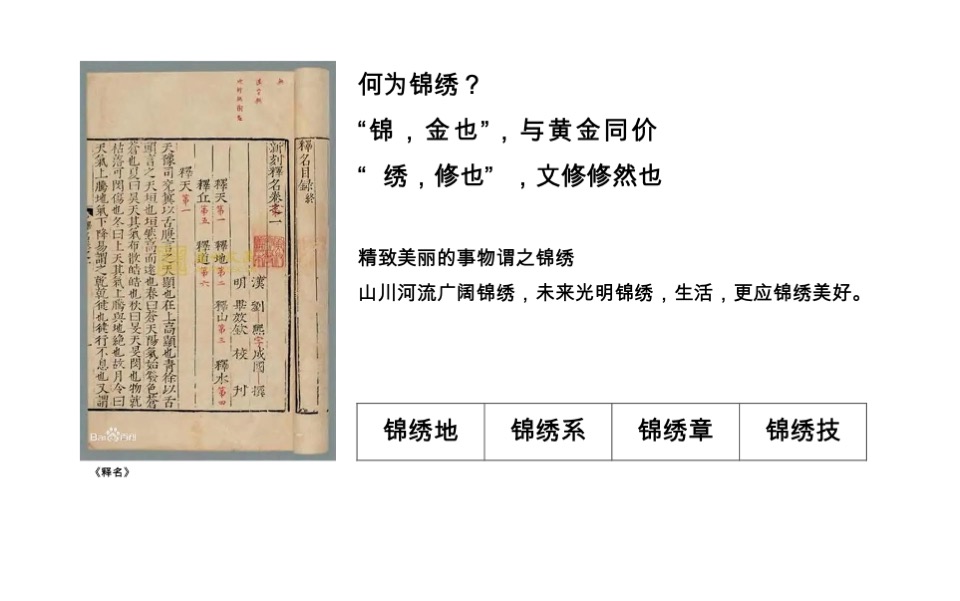 何为锦绣？
“锦，金也”，与黄金同价
“ 绣，修也” ，文修修然也
精致美丽的事物谓之锦绣
山川河流广阔锦绣，未来光明锦绣，生活，更应锦绣美好。
锦绣地
锦绣系
锦绣章
锦绣技
釋名目録終
新刻釋名卷第一
漢 劉熙字成國 撰
明 畢效欽 校刊
釋天第一 釋地第二 釋山第三 釋水第四
釋丘第五 釋道第六
釋天第一
天豫司兗冀以舌腹言之天顯也在上高顯也青徐以舌
頭言之天垣也垣然高而遠也春曰蒼天陽氣始發色蒼
蒼也夏曰昊天其氣布散皓皓也秋曰旻天旻閔也物就
枯落可閔傷也冬曰上天其氣上騰與地絶也故月令曰
天氣上騰地氣下降易謂之乾乾健也健行不息也又謂
Baidu百科
《释名》